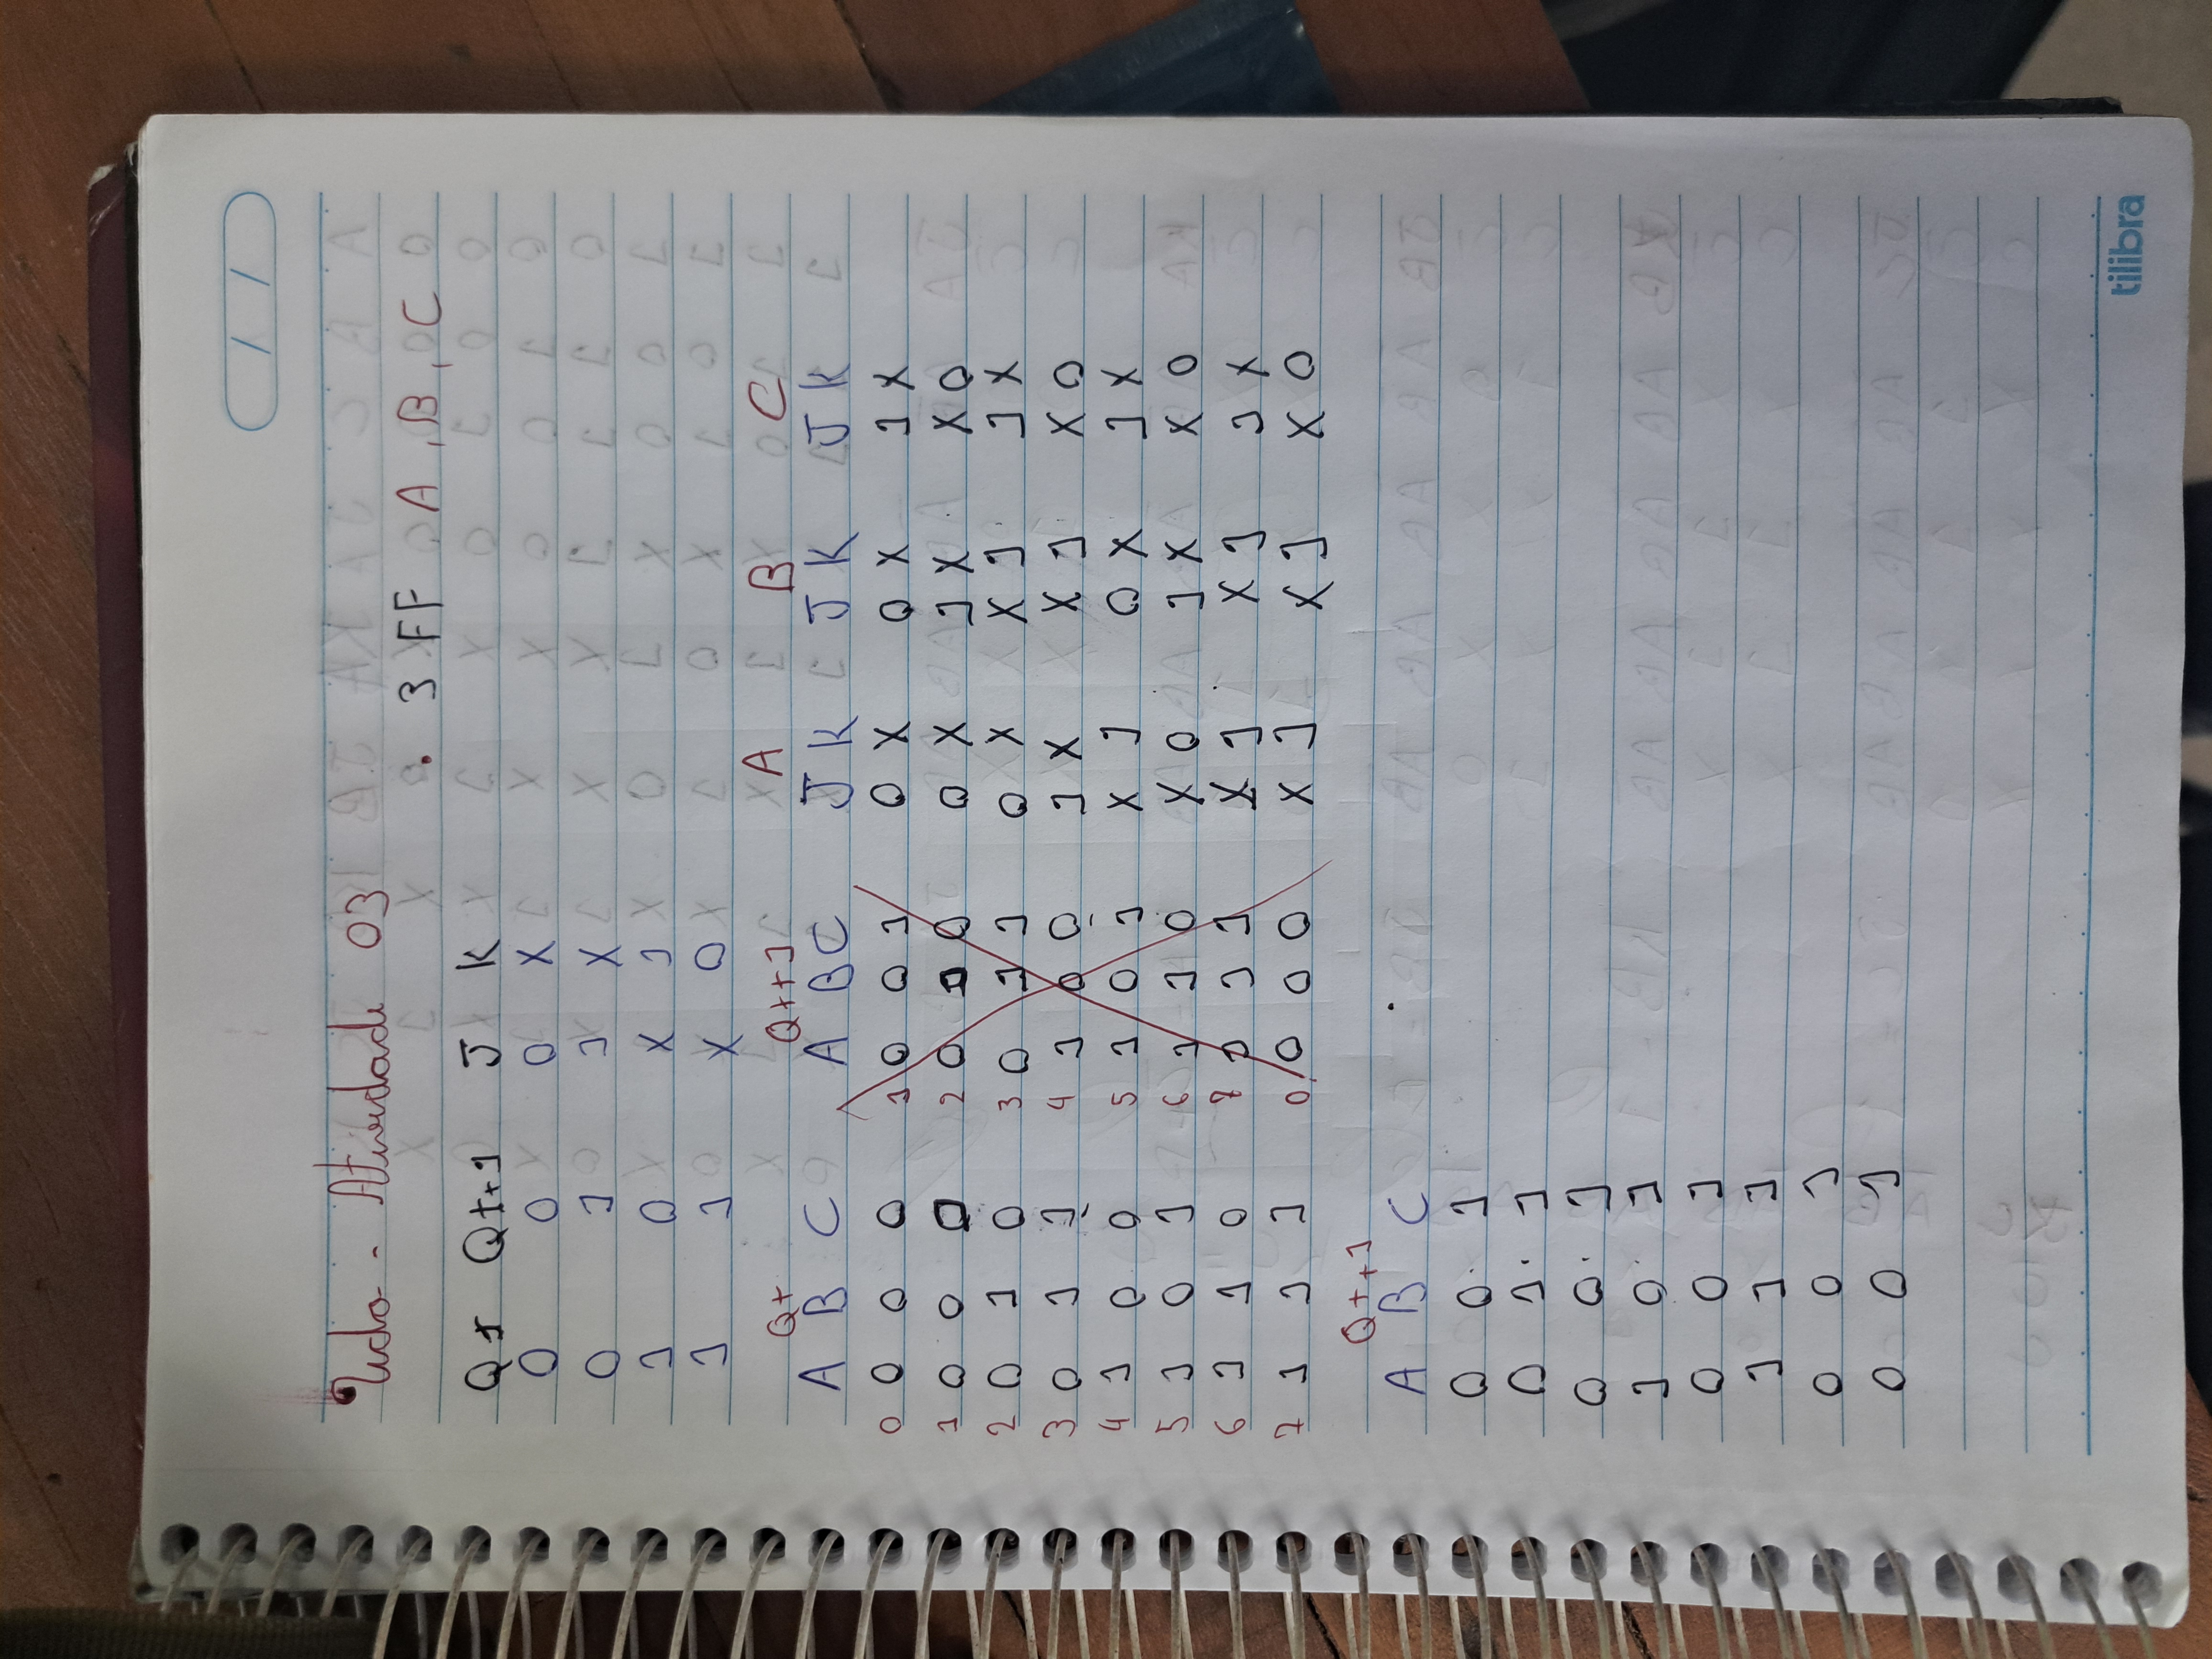 / /
Atividade 03
. 3 FF A , B, C
Qt Qt+1 J K
0 0 0 X
0 1 1 X
1 0 X 1
1 1 X 0
Qt Qt+1 A B C
A B C A B C J K J K J K
0 0 0 0 1 0 0 1 0 X 0 X 1 X
1 0 0 0 2 0 1 0 0 X 1 X X 0
2 0 1 0 3 0 1 1 0 X X 1 1 X
3 0 1 1 4 1 0 0 1 X X 1 X 0
4 1 0 0 5 1 0 1 X 1 0 X 1 X
5 1 0 1 6 1 1 0 X 0 1 X X 0
6 1 1 0 7 1 1 1 X 1 X 1 1 X
7 1 1 1 0 0 0 0 X 1 X 1 X 0
Qt+1
A B C
0 0 1
0 1 1
0 0 1
1 0 1
0 0 1
1 1 1
0 0 1
0 0 1
tilibra